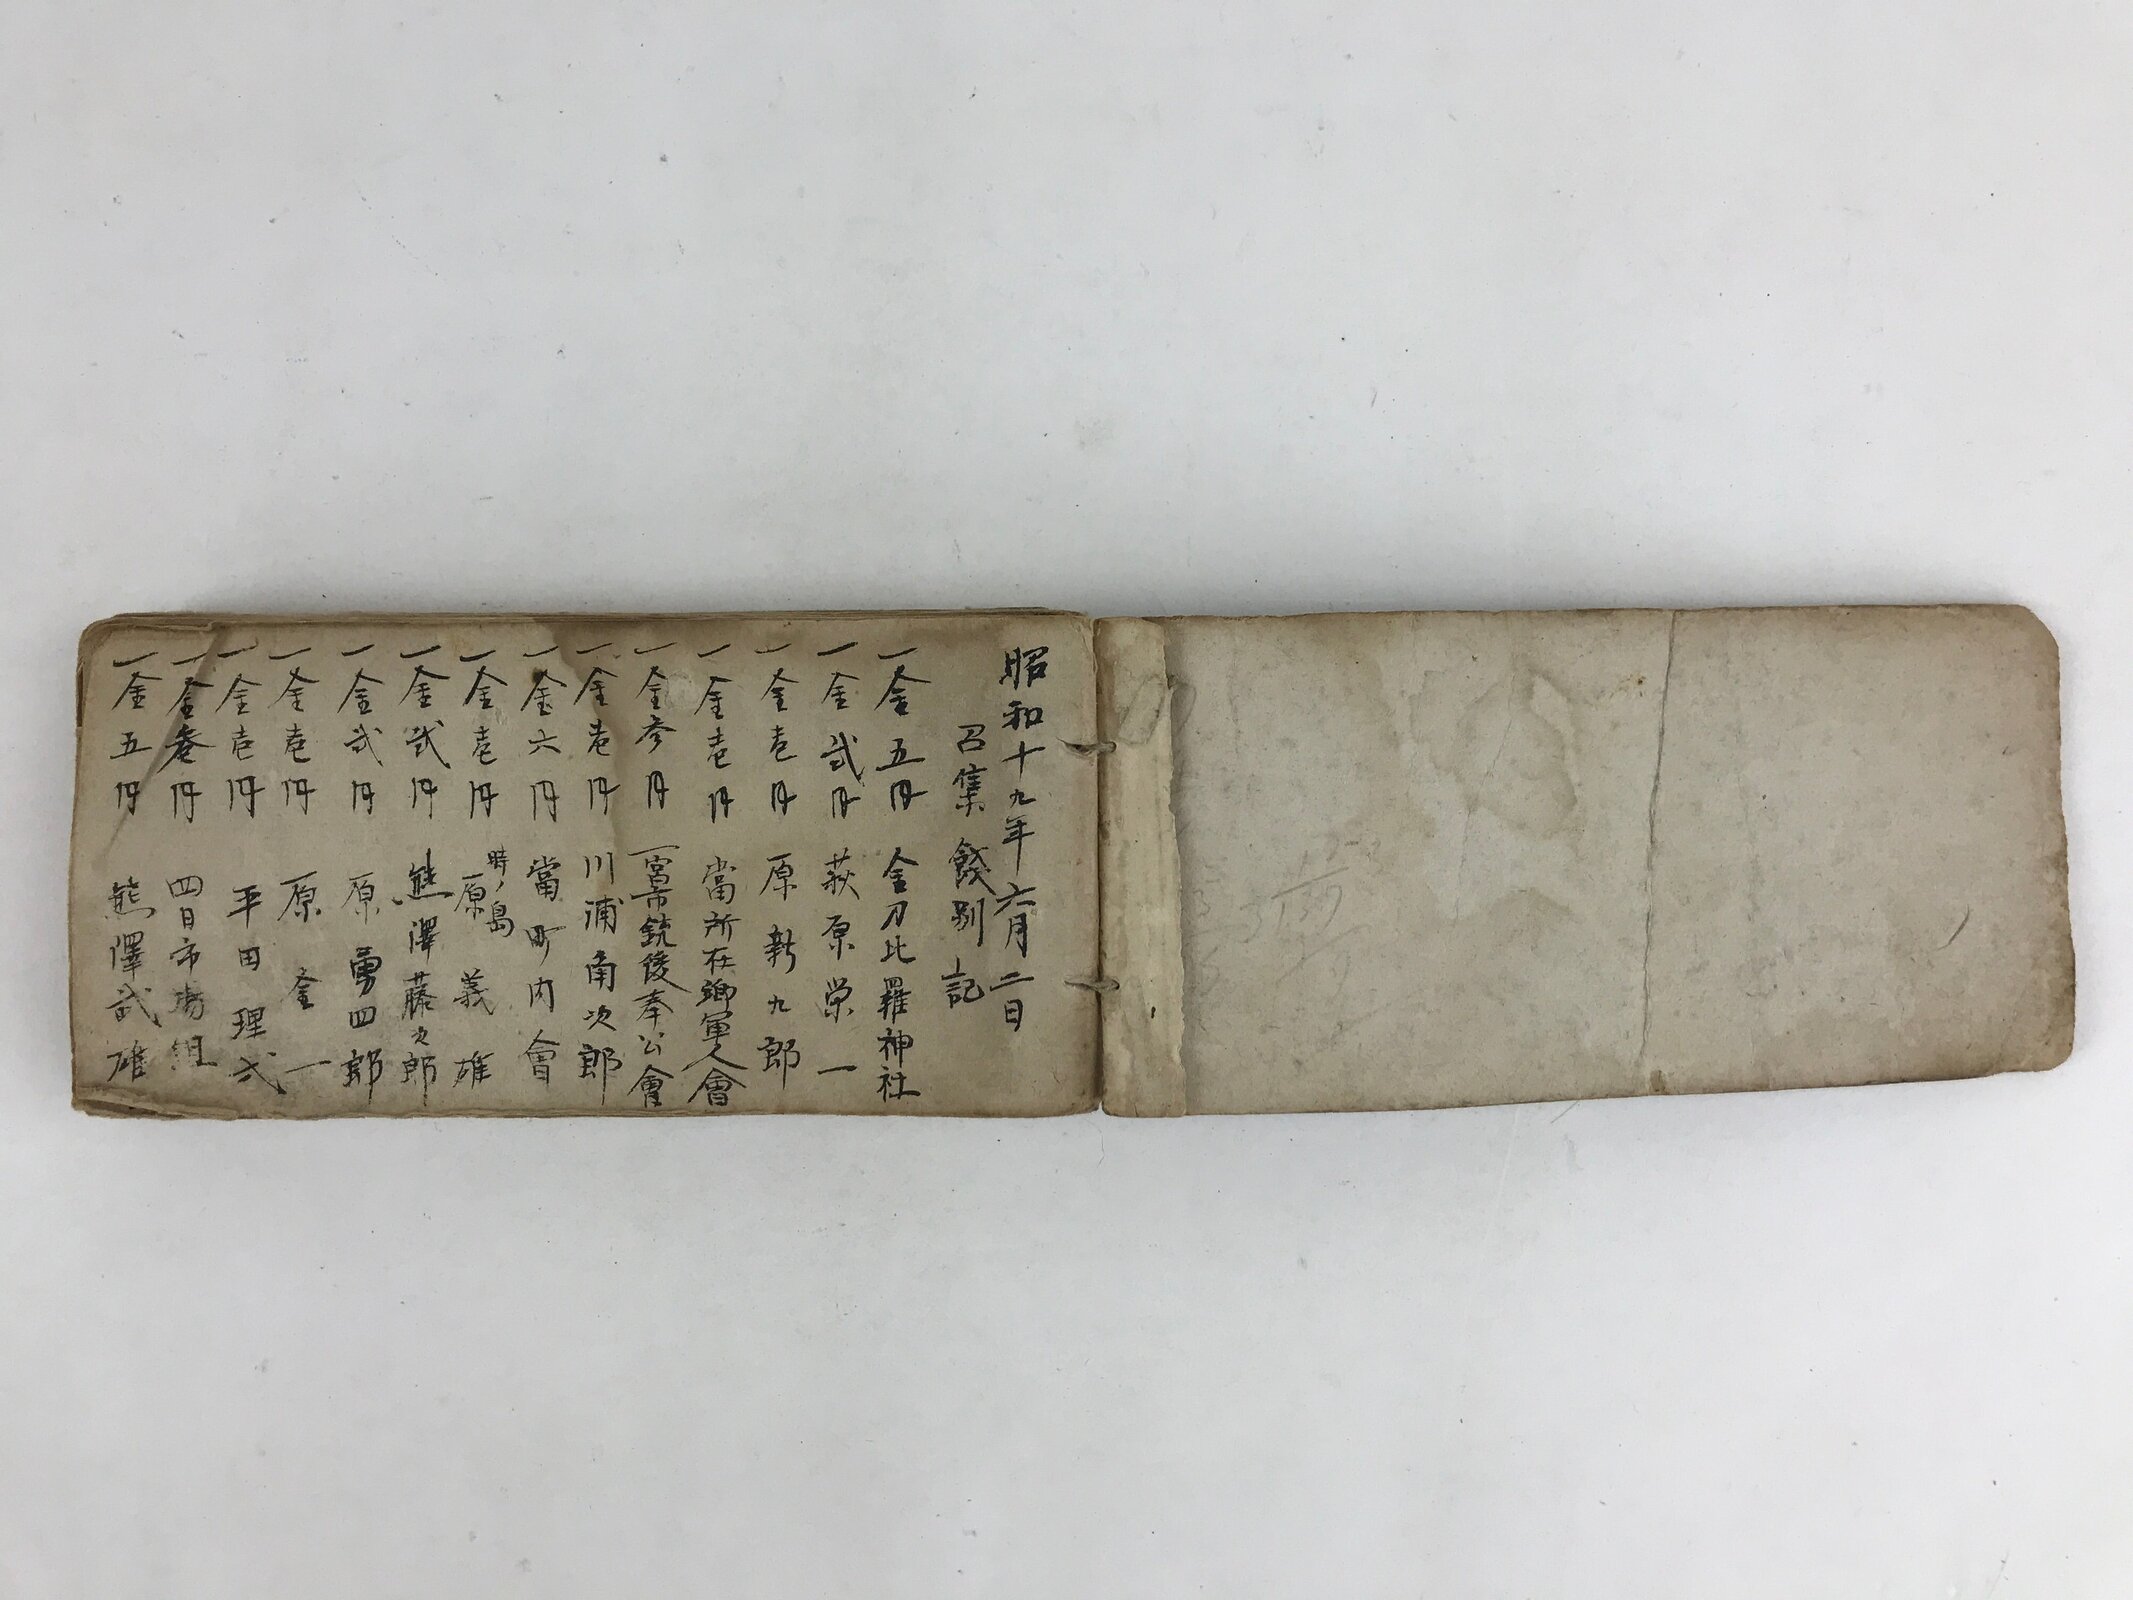 昭和十九年六月二日
召集餞別記
一金五円 金刀比羅神社
一金弐円 荻原栄一
一金壱円 原新九郎
一金壱円 當所在郷軍人會
一金参円 一宮市銃後奉公會
一金壱円 川浦南次郎
一金六円 當町内會
一金壱円 時ノ島 原義雄
一金弐円 熊澤藤次郎
一金弐円 原勇四郎
一金壱円 原金一
一金壱円 平田理弌
一金参円 四日市場組
一金五円 熊澤武雄